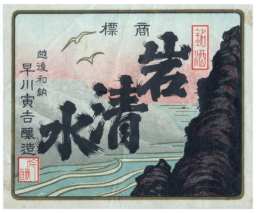 商標
銘酒
岩清水
越後和納
早川寅吉醸造